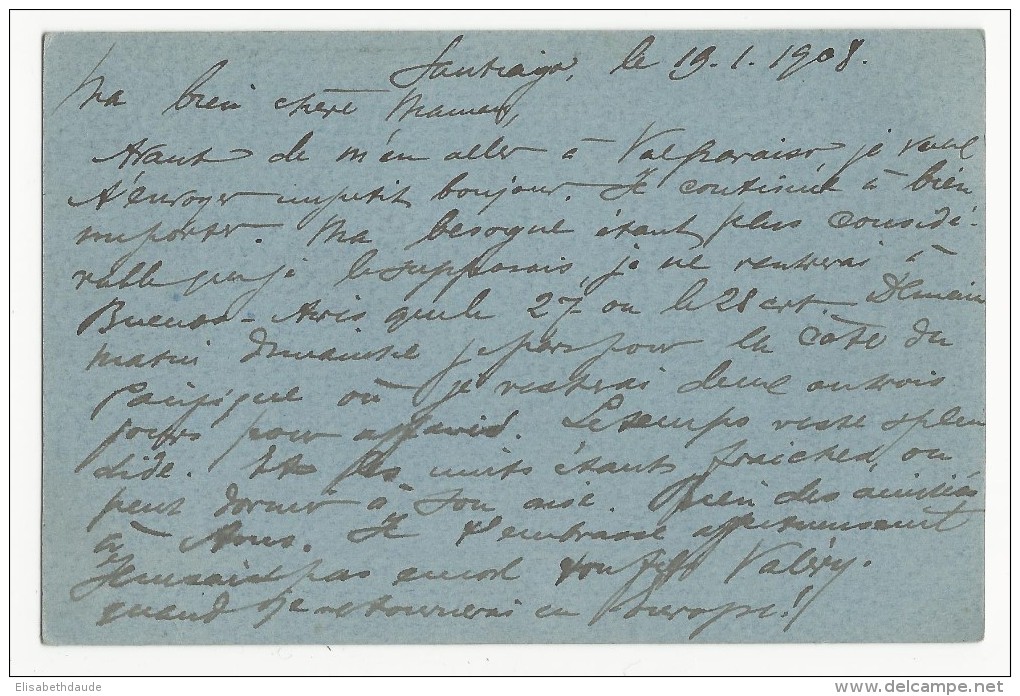 Santiago, le 19.1.1908.
Ma bien chère Maman,
Avant de m'en aller à Valparaiso, je veux
t'envoyer un petit bonjour. Je continue à bien
me porter. Ma besogne étant plus considé-
rable que je le supposais, je ne rentrerai à
Buenos-Aires que le 27 ou le 28 crt. Demain
matin dimanche je pars pour la côte du
Pacifique où je resterai deux ou trois
jours pour affaires. Le temps reste splen
dide. Et les nuits étant fraîches, on
peut dormir à son aise. Bien des amitiés
à tous. Je t'embrasse affectueusement
ton fils Valéry.
Je ne sais pas encore
quand je retournerai en Europe!
Elisabethdaude
www.delcampe.net